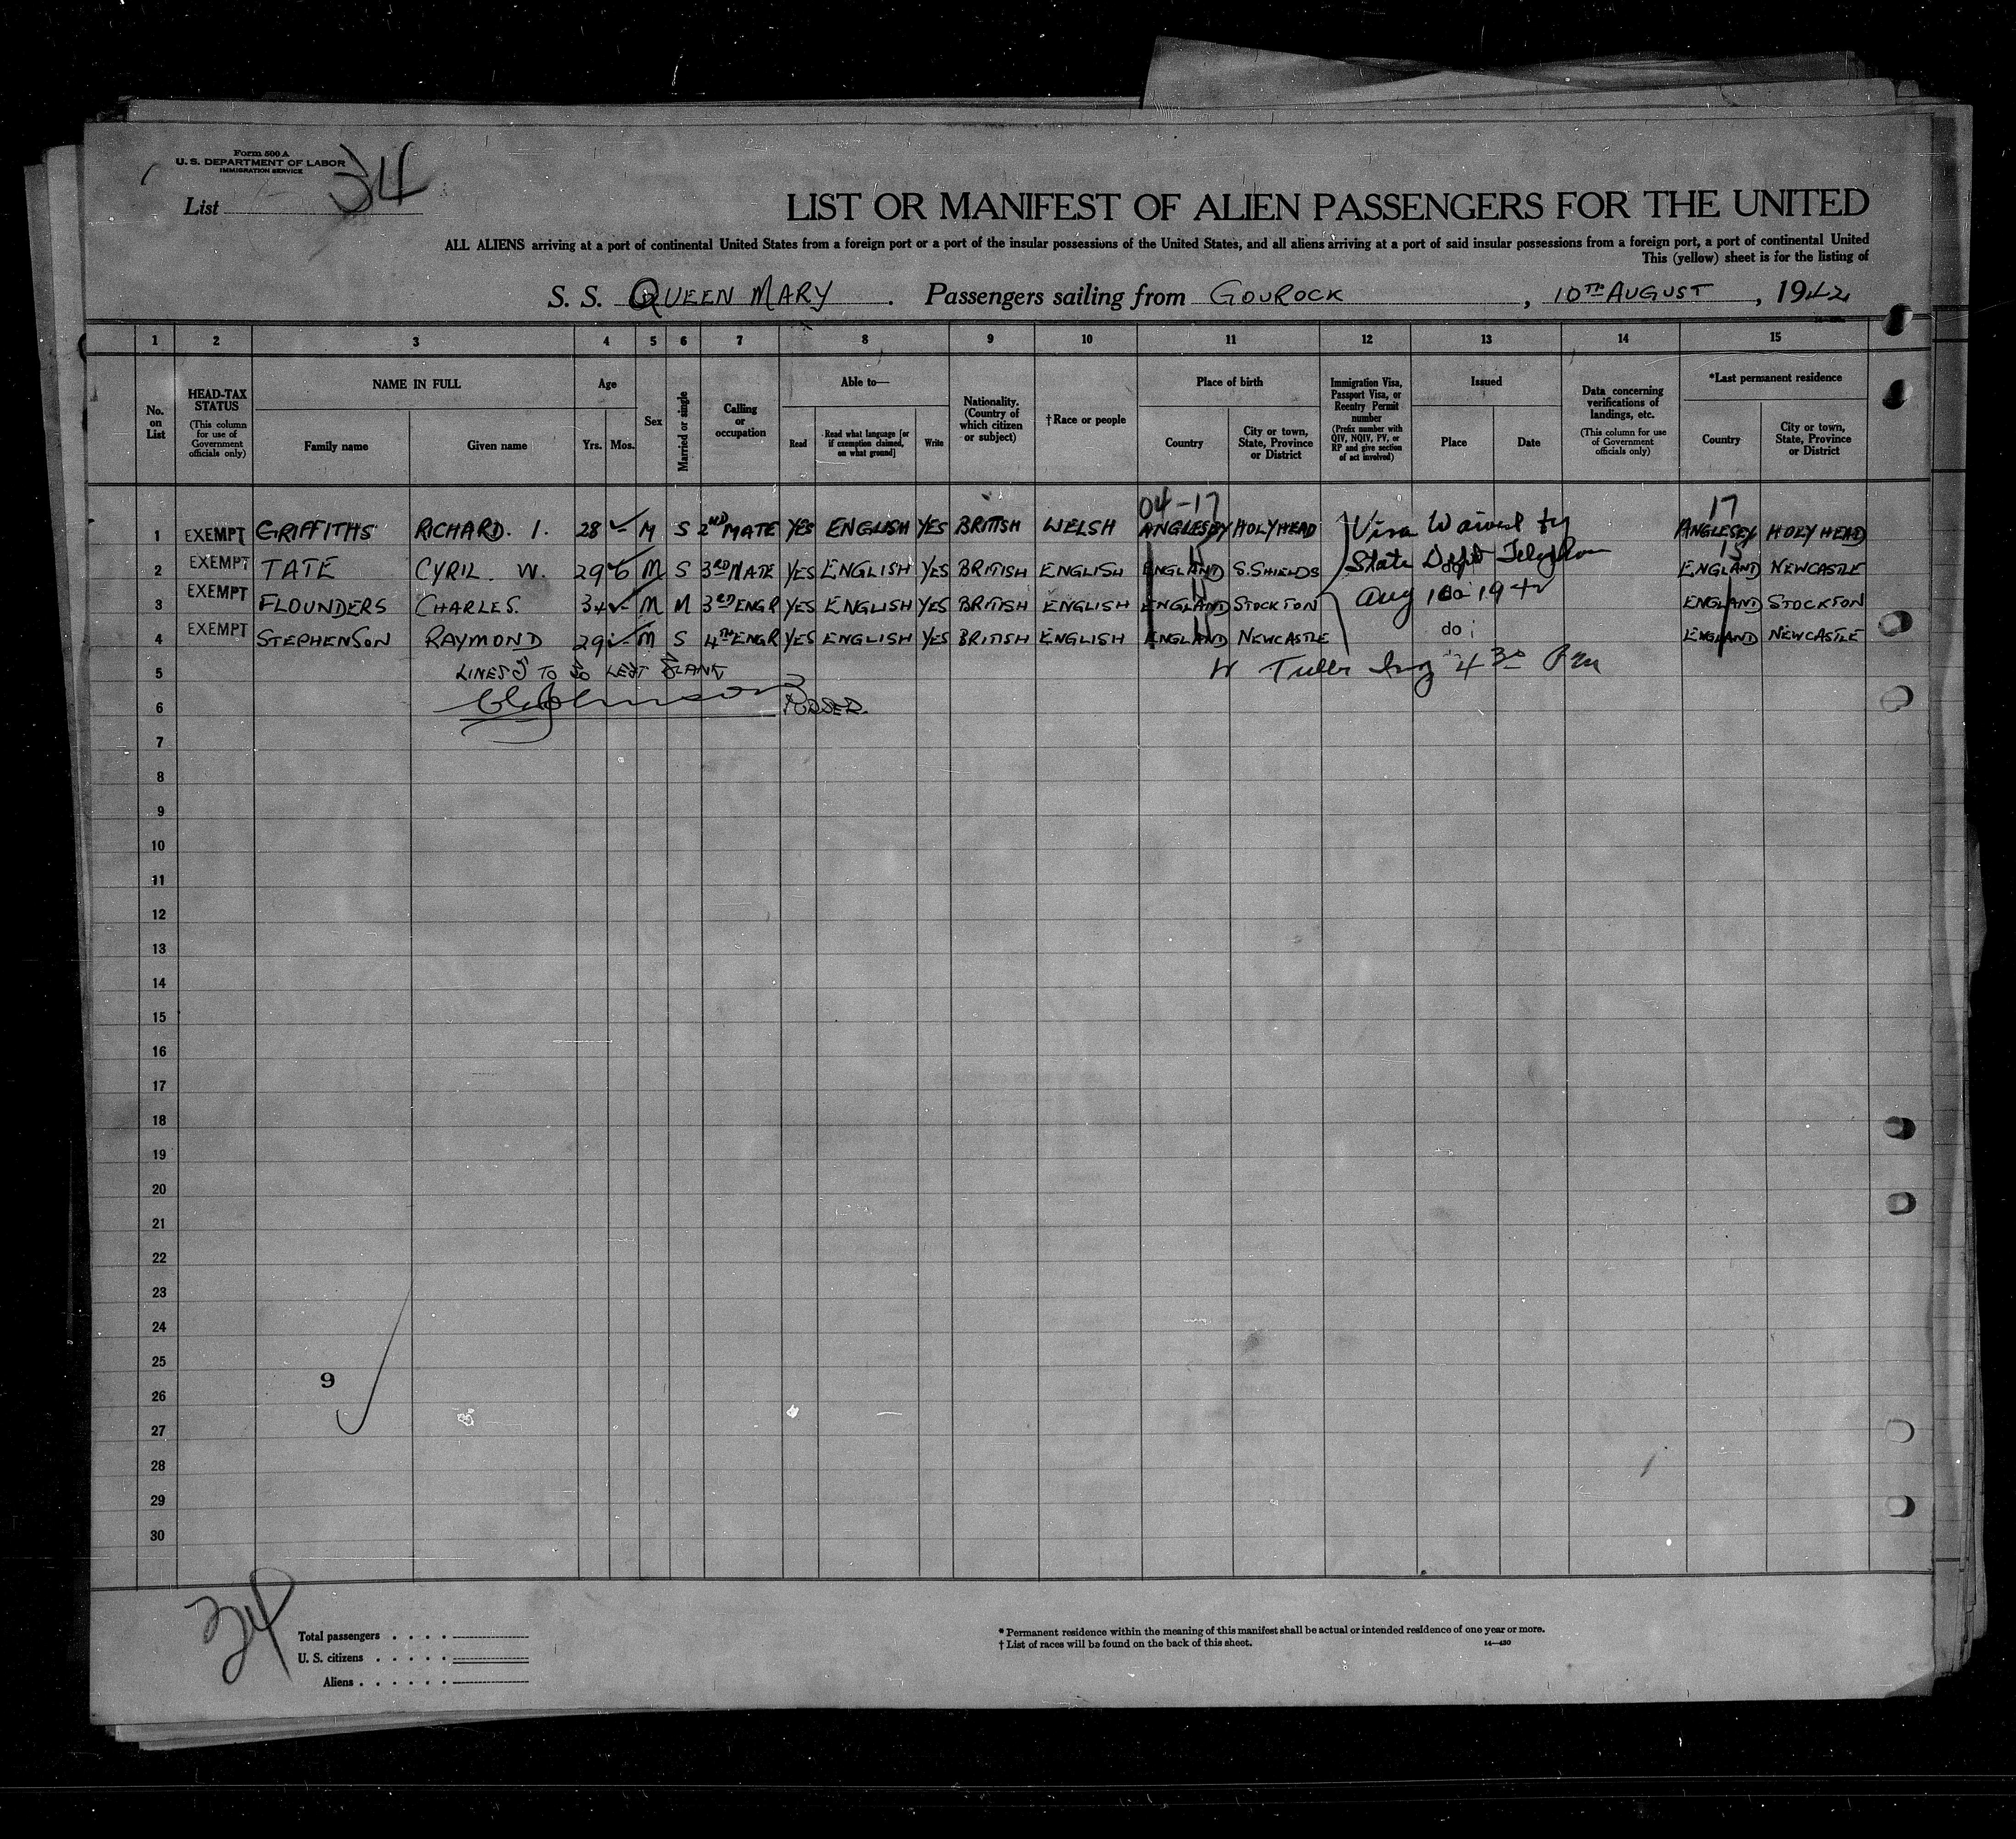 Form 500 A
U. S. DEPARTMENT OF LABOR
IMMIGRATION SERVICE
List 34
LIST OR MANIFEST OF ALIEN PASSENGERS FOR THE UNITED
ALL ALIENS arriving at a port of continental United States from a foreign port or a port of the insular possessions of the United States, and all aliens arriving at a port of said insular possessions from a foreign port, a port of continental United
This (yellow) sheet is for the listing of
S. S. QUEEN MARY . Passengers sailing from GOUROCK , 10TH AUGUST , 1942
1 2 3 4 5 6 7 8 9 10 11 12 13 14 15
No. on List
HEAD-TAX STATUS (This column for use of Government officials only)
NAME IN FULL
Family name Given name
Age
Yrs. Mos.
Sex
Married or single
Calling or occupation
Able to—
Read Read what language [or if exemption claimed, on what ground] Write
Nationality. (Country of which citizen or subject)
†Race or people
Place of birth
Country City or town, State, Province or District
Immigration Visa, Passport Visa, or Reentry Permit number (Prefix number with QIV, NQIV, PV, or RP and give section of act involved)
Issued
Place Date
Data concerning verifications of landings, etc. (This column for use of Government officials only)
*Last permanent residence
Country City or town, State, Province or District
04-17 17
1 EXEMPT GRIFFITHS RICHARD. I. 28 M S 2ND MATE YES ENGLISH YES BRITISH WELSH ANGLESEY HOLYHEAD Visa Waived by ANGLESEY HOLYHEAD
15
2 EXEMPT TATE CYRIL. W. 29 6 M S 3RD MATE YES ENGLISH YES BRITISH ENGLISH ENGLAND S. SHIELDS State Dept do ENGLAND NEWCASTLE
3 EXEMPT FLOUNDERS CHARLES. 34 M M 3RD ENGR YES ENGLISH YES BRITISH ENGLISH ENGLAND STOCKTON Aug 10 1942 do ENGLAND STOCKTON
4 EXEMPT STEPHENSON RAYMOND 29 M S 4TH ENGR YES ENGLISH YES BRITISH ENGLISH ENGLAND NEWCASTLE do ENGLAND NEWCASTLE
5 LINES 5 TO 30 LEFT BLANK 4 30 Pm
6 PURSER.
7
8
9
10
11
12
13
14
15
16
17
18
19
20
21
22
23
24
25
9
26
27
28
29
30
34
Total passengers . . . .
U. S. citizens . . . . .
Aliens . . . . . .
* Permanent residence within the meaning of this manifest shall be actual or intended residence of one year or more.
† List of races will be found on the back of this sheet. 14—430